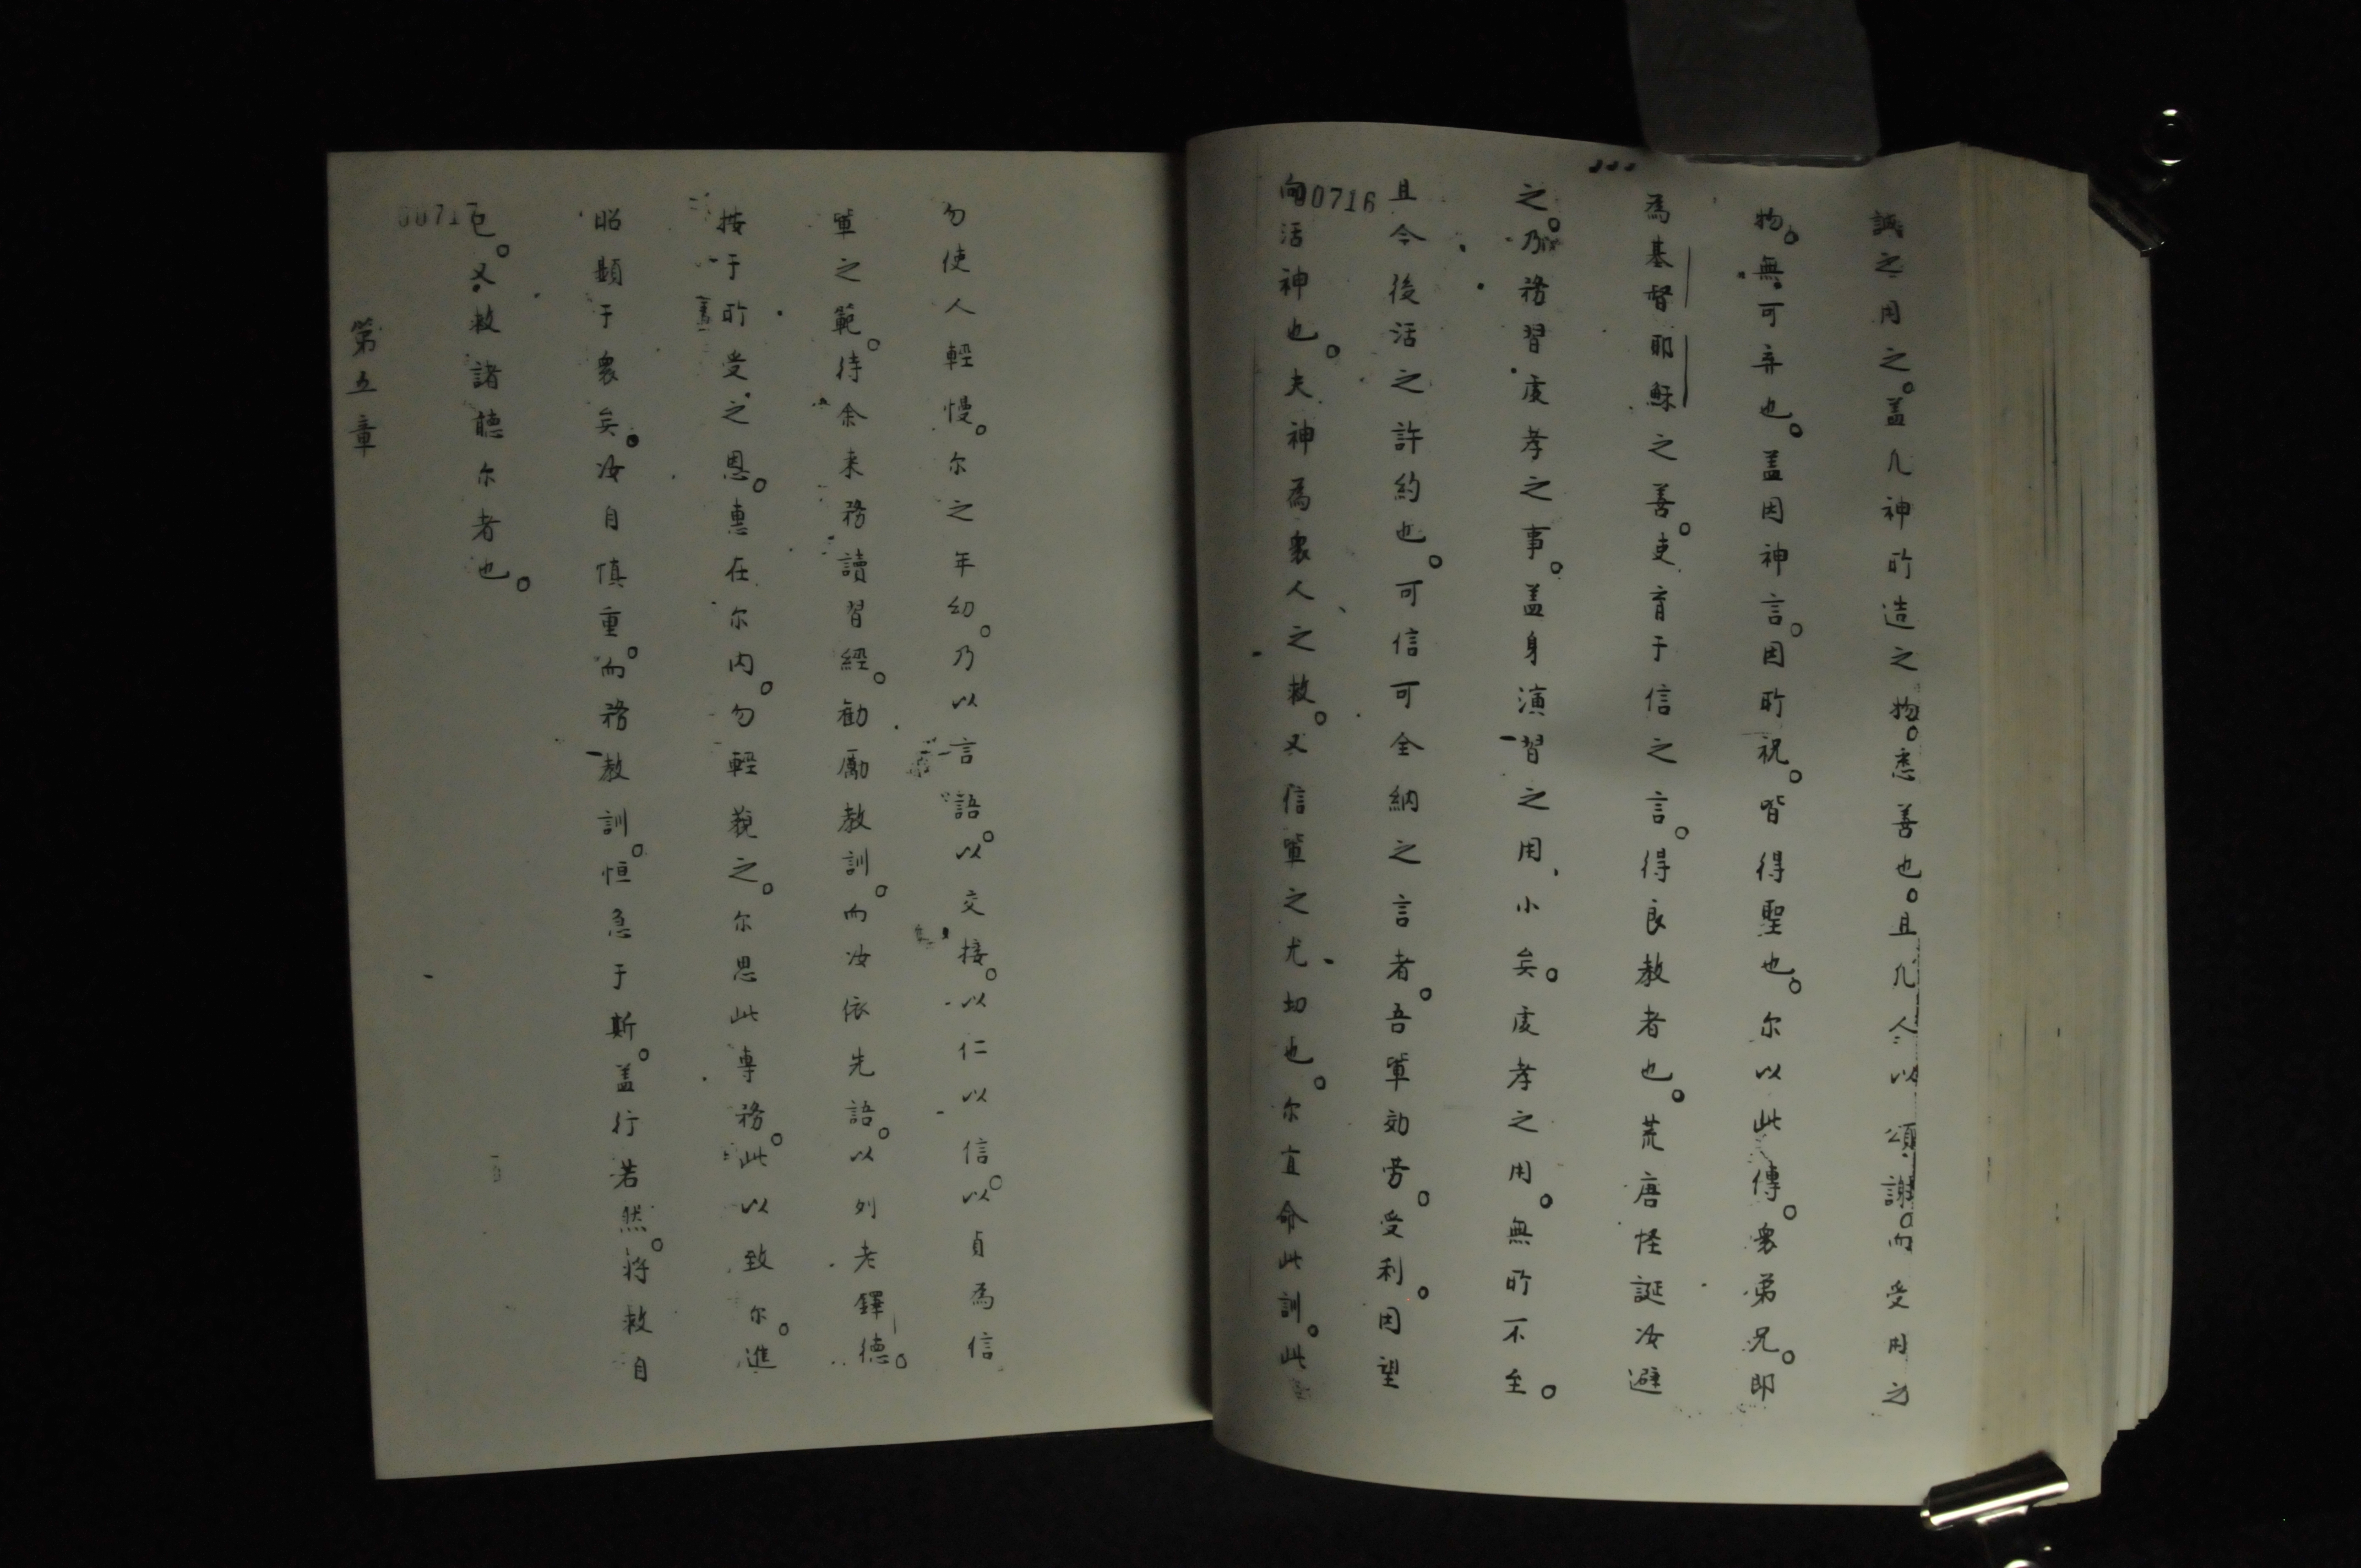 誠之用之。盖凢神所造之物。悉善也。且凢人以頌謝。而受用之
物。無可弃也。盖因神言。因所祝。皆得聖也。尔以此傳。衆弟兄。即
為基督耶穌之善。吏育于信之言。得良教者也。荒唐怪誕汝避
之。乃務習虔孝之事。盖身演習之用、小矣。虔孝之用。無所不至。
且今後活之許約也。可信可全納之言者。吾軰効劳。受利。因望
向活神也。夫神為衆人之救。又信軰之尤切也。尔宜命此訓。此
00716
勿使人輕慢。尔之年幼。乃以言語。以交接。以仁以信。以貞為信
軰之範。待余来務讀習經。勧勵教訓。而汝依先語。以列老鐸德。
按于所受之恩。惠在尔内。勿輕藐之。尔思此專務。此以致尔。進
昭顯于衆矣。汝自慎重。而務教訓。恒急于斯。盖行若然。将救自
己。又救諸聽尔者也。
第五章